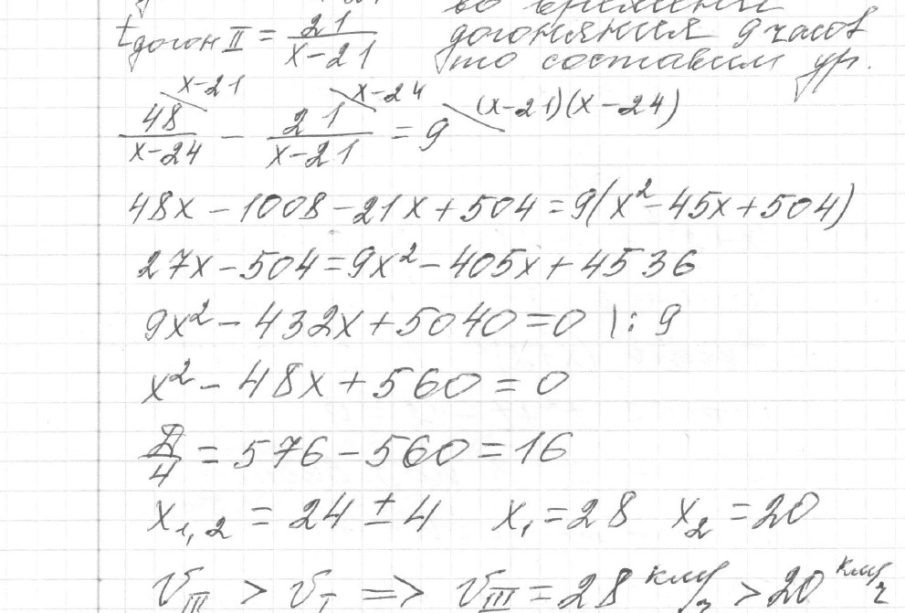 во времени
t догон II = 21/(x-21) догоняния 9 часов
то составим ур.
48/(x-24) \x-21 - 21/(x-21) \x-24 = 9 \(x-21)(x-24)
48x - 1008 - 21x + 504 = 9(x² - 45x + 504)
27x - 504 = 9x² - 405x + 4536
9x² - 432x + 5040 = 0 |: 9
x² - 48x + 560 = 0
Д/4 = 576 - 560 = 16
x₁,₂ = 24 ± 4 x₁ = 28 x₂ = 20
V III > V I => V III = 28 км/ч > 20 км/ч